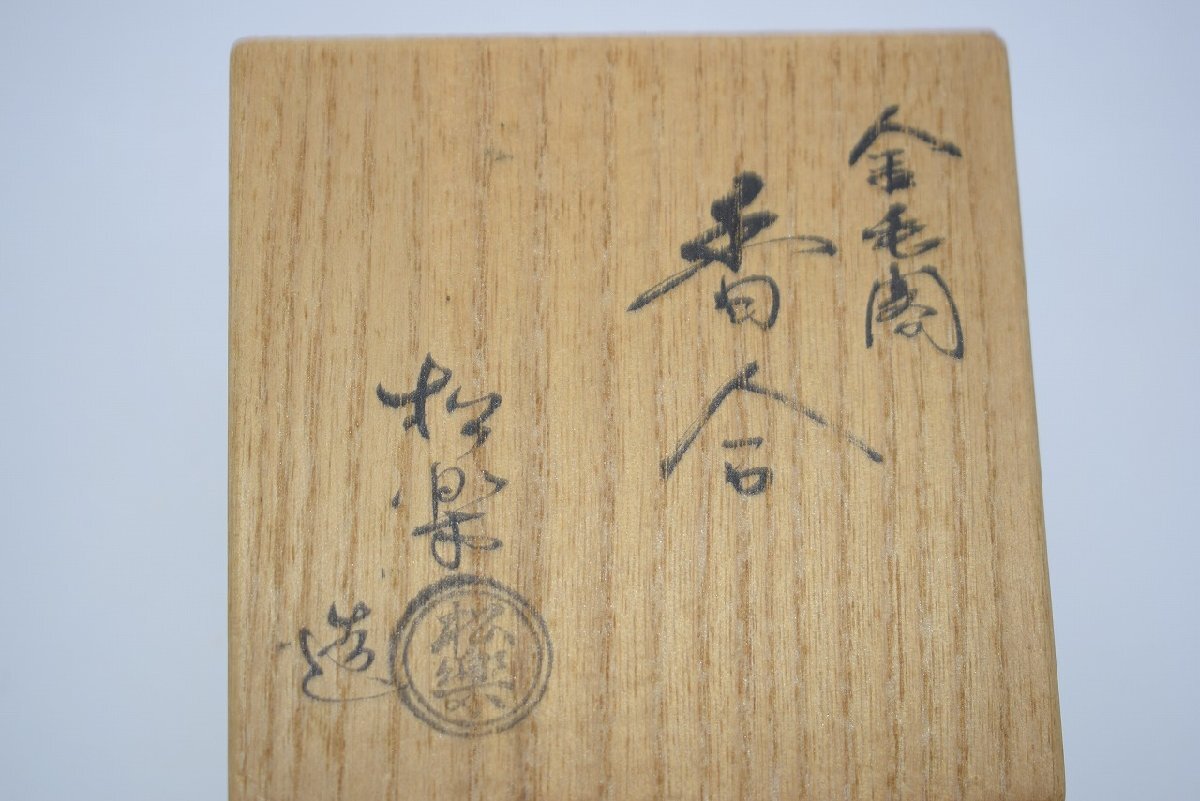 金毛閣
香合
松楽
造
松楽